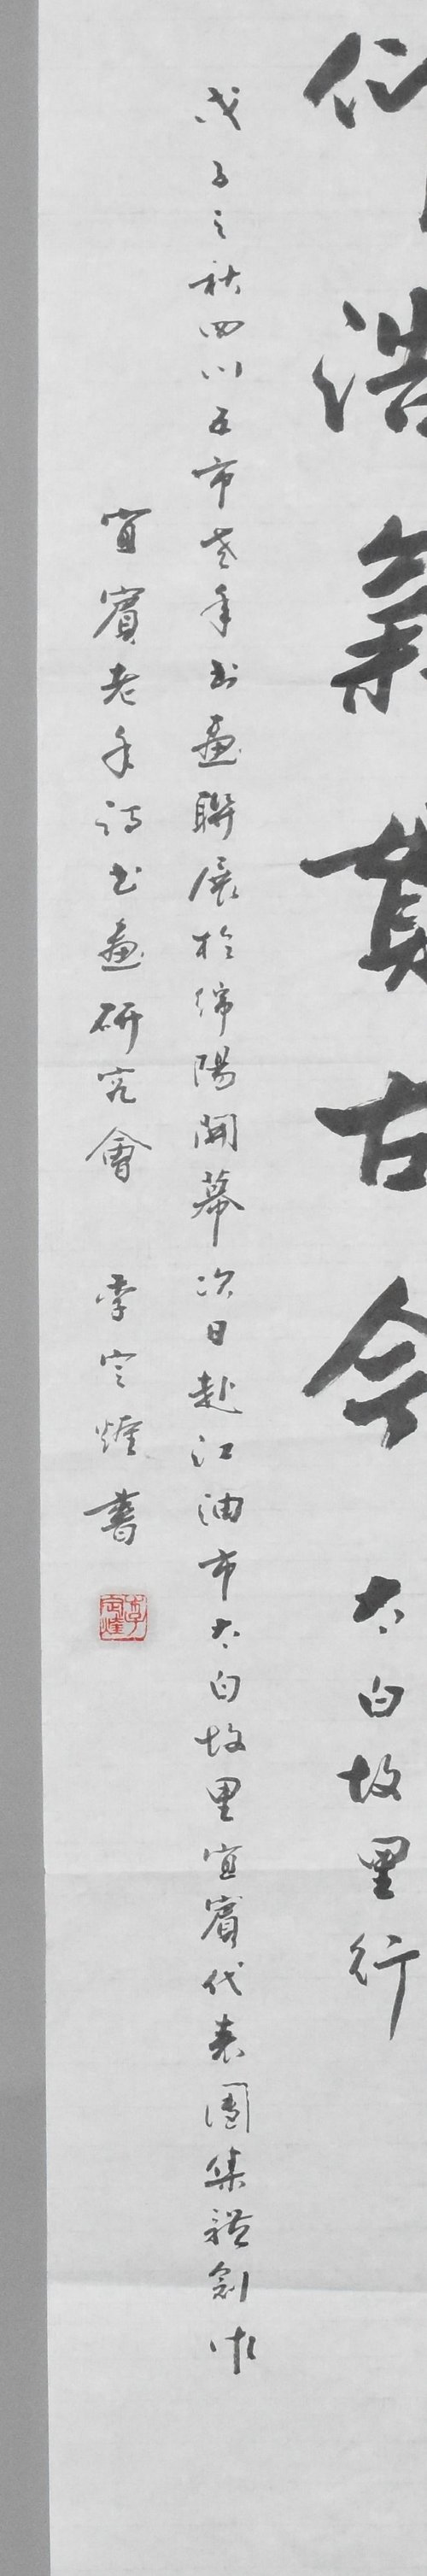 仰浩氣貫古今 太白故里行
戊子之秋四川五市老年书畫聯展於绵陽開幕次日赴江油市太白故里宜賓代表團集體創作
宜賓老年诗书畫研究會 李定煃書